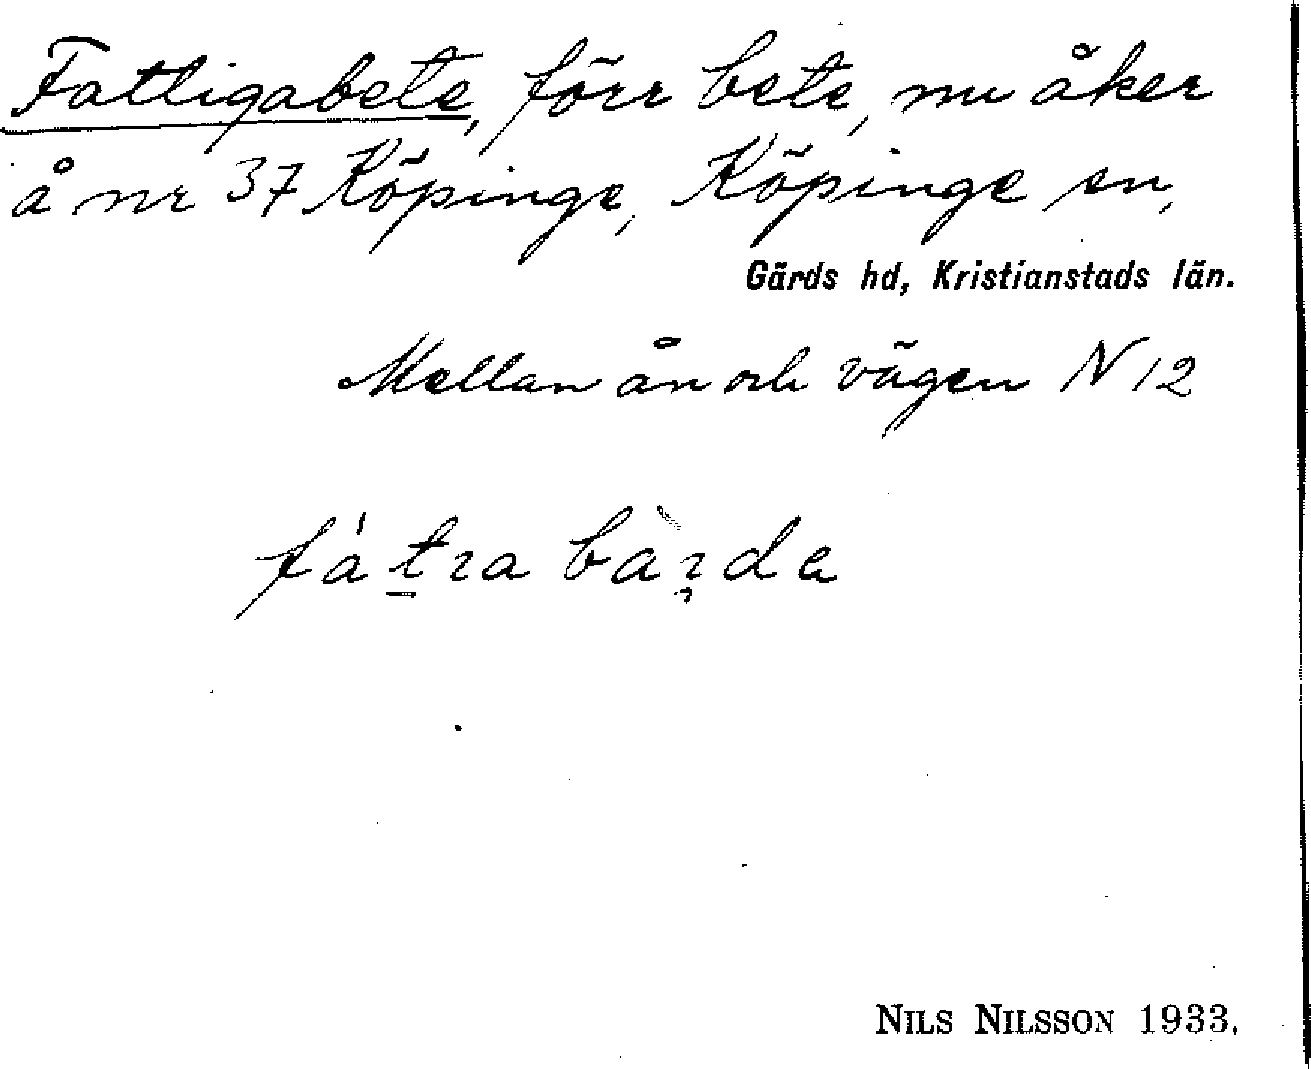 Fattigabete, förr bete, nu åker
å nr 37 Köpinge, Köpinge sn,
Gärds hd, Kristianstads län.
Mellan ån och vägen N 12
fátra bàrda
NILS NILSSON 1933.